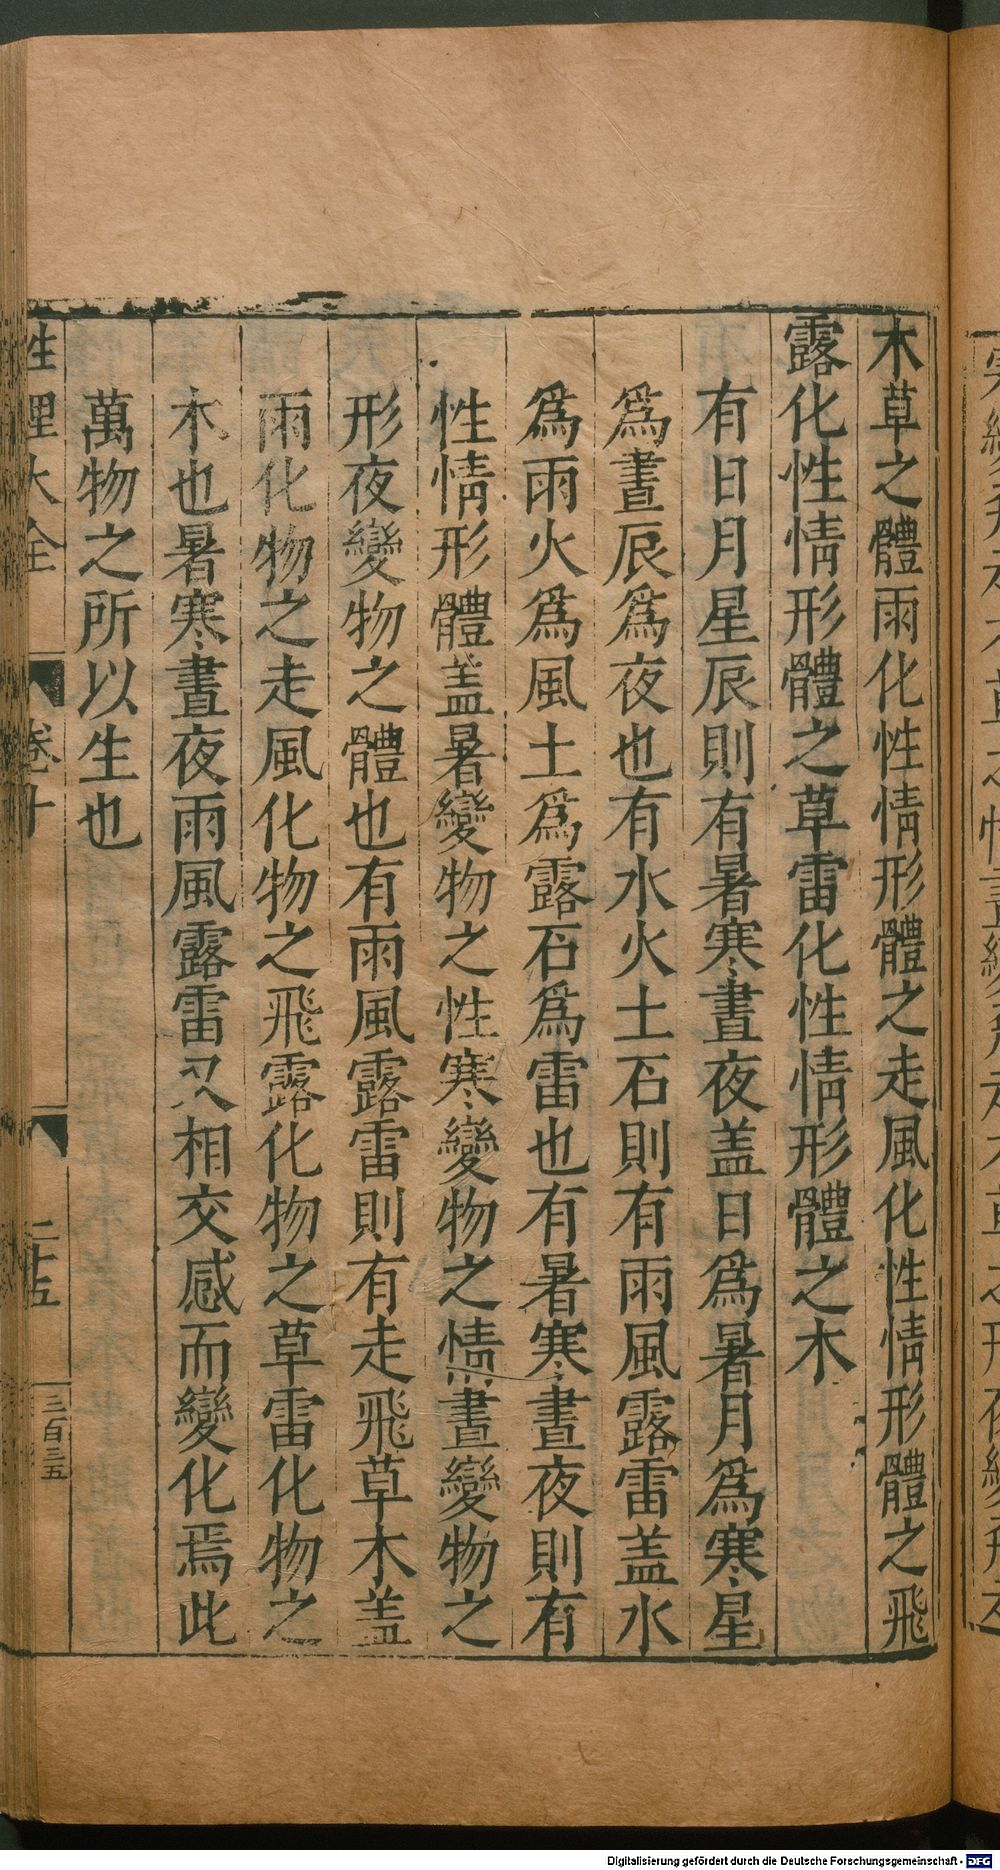 木草之體雨化性情形體之走風化性情形體之飛
露化性情形體之草雷化性情形體之木
有日月星辰則有暑寒晝夜盖日爲暑月爲寒星
爲晝辰爲夜也有水火土石則有雨風露雷盖水
爲雨火爲風土爲露石爲雷也有暑寒晝夜則有
性情形體盖暑變物之性寒變物之情晝變物之
形夜變物之體也有雨風露雷則有走飛草木盖
雨化物之走風化物之飛露化物之草雷化物之
木也暑寒晝夜雨風露雷又相交感而變化焉此
萬物之所以生也
性理大全 卷十 二十五 三百三五
Digitalisierung gefördert durch die Deutsche Forschungsgemeinschaft - DFG